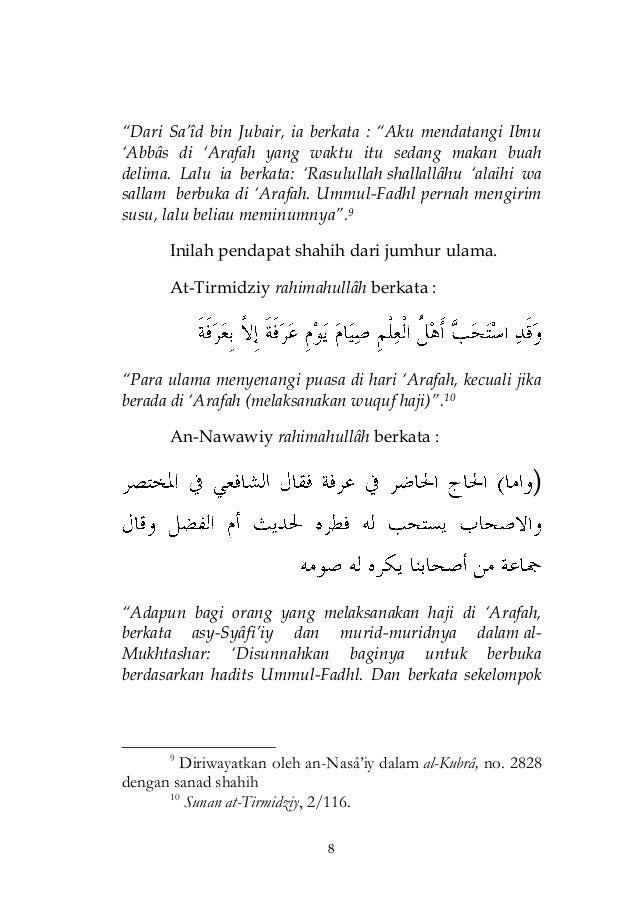 “Dari Sa’îd bin Jubair, ia berkata : “Aku mendatangi Ibnu
‘Abbâs di ‘Arafah yang waktu itu sedang makan buah
delima. Lalu ia berkata: ‘Rasulullah shallallâhu ‘alaihi wa
sallam berbuka di ‘Arafah. Ummul-Fadhl pernah mengirim
susu, lalu beliau meminumnya”.⁹
Inilah pendapat shahih dari jumhur ulama.
At-Tirmidziy rahimahullâh berkata :
وَقَدِ اسْتَحَبَّ أَهْلُ الْعِلْمِ صِيَامَ يَوْمِ عَرَفَةَ إِلاَّ بِعَرَفَةَ
“Para ulama menyenangi puasa di hari ‘Arafah, kecuali jika
berada di ‘Arafah (melaksanakan wuquf haji)”.¹⁰
An-Nawawiy rahimahullâh berkata :
(واما) الحاج الحاضر في عرفة فقال الشافعي في المختصر
والاصحاب يستحب له فطره لحديث أم الفضل وقال
جماعة من أصحابنا يكره له صومه
“Adapun bagi orang yang melaksanakan haji di ‘Arafah,
berkata asy-Syâfi’iy dan murid-muridnya dalam al-
Mukhtashar: ‘Disunnahkan baginya untuk berbuka
berdasarkan hadits Ummul-Fadhl. Dan berkata sekelompok
⁹ Diriwayatkan oleh an-Nasâ’iy dalam al-Kubrâ, no. 2828
dengan sanad shahih
¹⁰ Sunan at-Tirmidziy, 2/116.
8